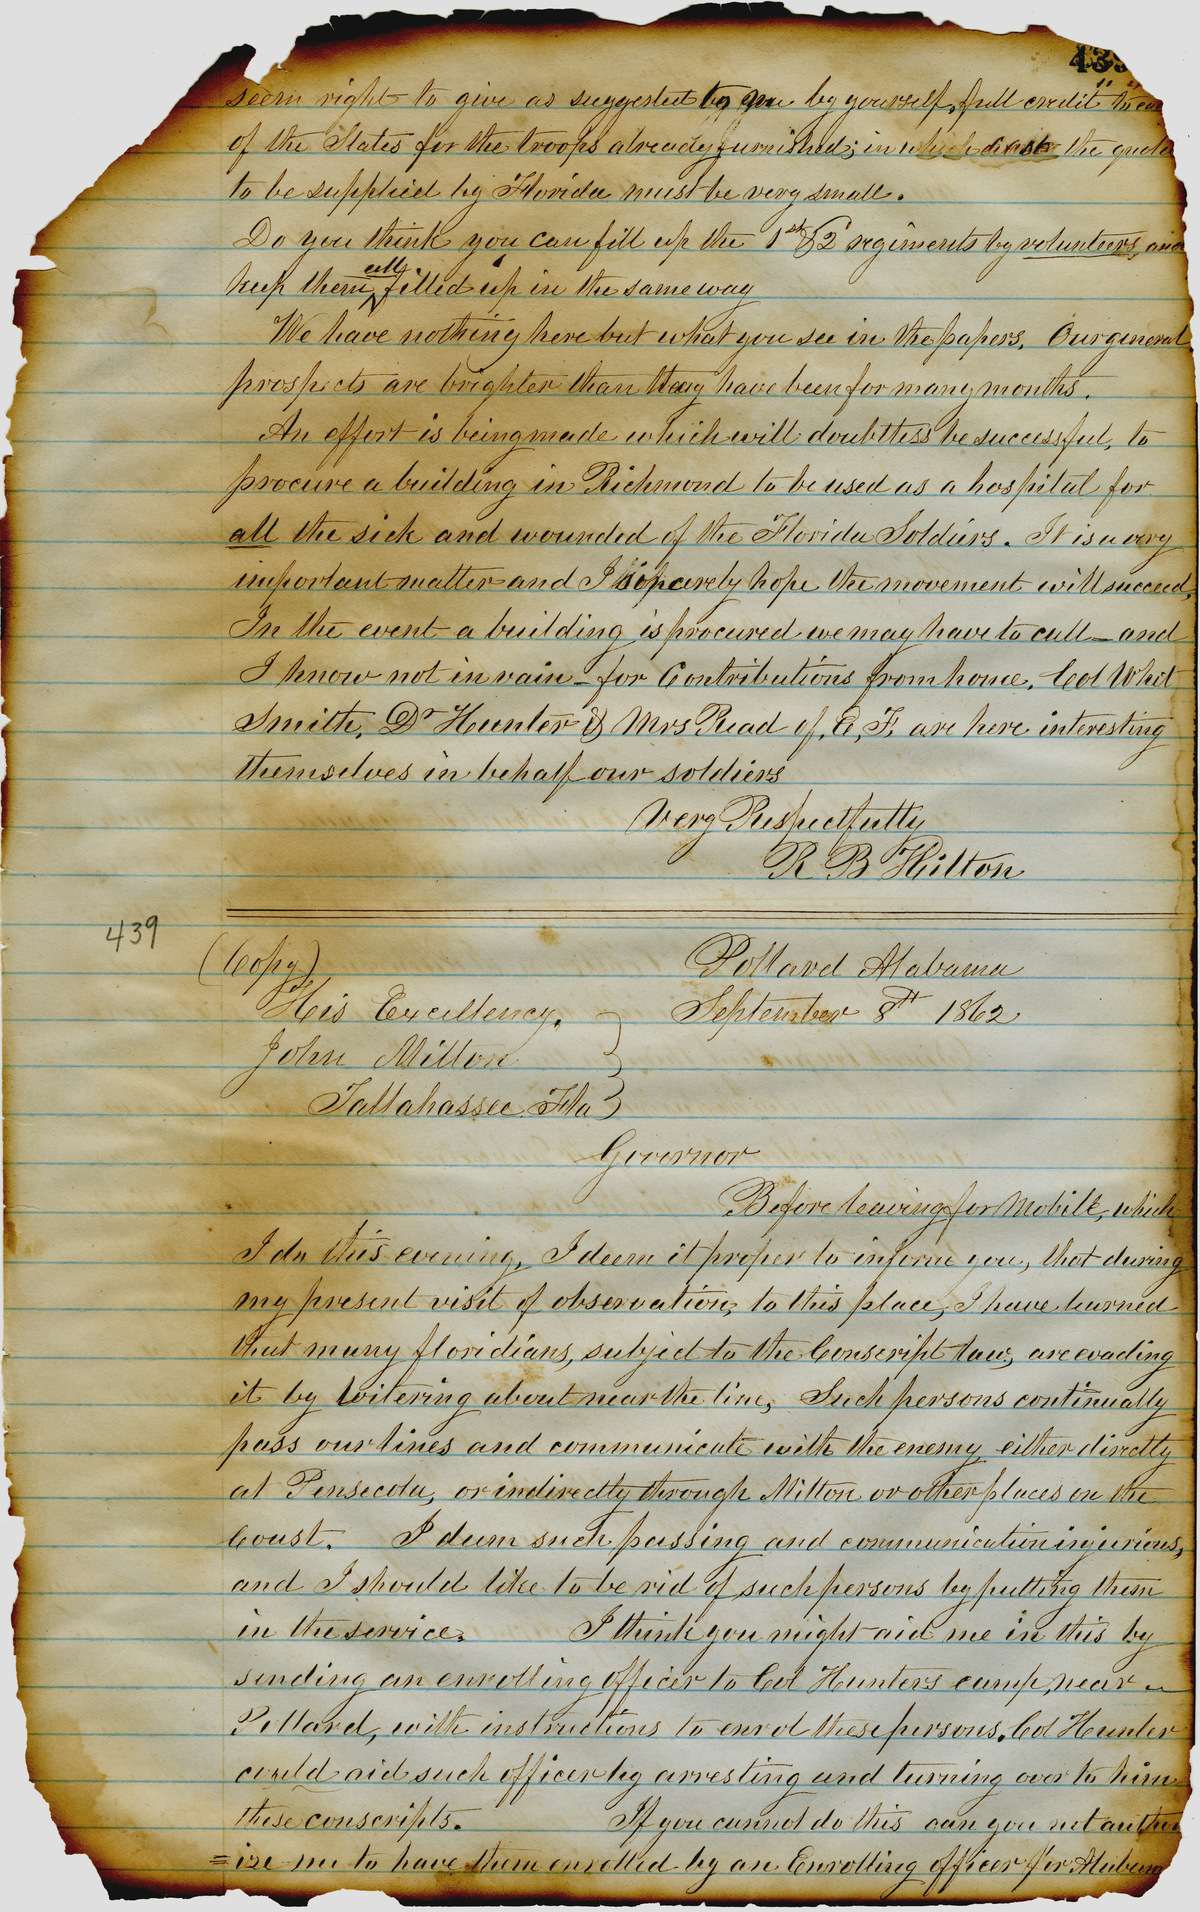 439
seem right to give as suggested by you by yourself, full credit to
of the States for the troops already furnished; in which case the quota
to be supplied by Florida must be very small.
Do you think you can fill up the 1st & 2d regiments by volunteers, and
keep them all filled up in the same way
We have nothing here but what you see in the papers. Our general
prospects are brighter than they have been for many months.
An effort is being made which will doubtless be successful, to
procure a building in Richmond to be used as a hospital for
all the sick and wounded of the Florida Soldiers. It is a very
important matter and I sincerely hope the movement will succeed.
In the event a building is procured we may have to call – and
I know not in vain – for Contributions from home. Col Whit
Smith, Dr Hunter & Mrs Read of, E, F, are here interesting
themselves in behalf our soldiers
Very Respectfully
R B Hilton
439
(Copy)
Pollard Alabama
His Excellency,
September 8th 1862
John Milton
Tallahassee Fla
Governor
Before leaving for Mobile, which
I do this evening, I deem it proper to inform you, that during
my present visit of observation, to this place, I have learned
that many floridians, subject to the Conscript law, are evading
it by loitering about near the line, Such persons continually
pass our lines and communicate with the enemy either directly
at Pensecola, or indirectly through Milton or other places on the
Coast. I deem such passing and communication injurious,
and I should like to be rid of such persons by putting them
in the service. I think you might aid me in this by
sending an enrolling officer to Col Hunters camp, near
Pollard, with instructions to enrol these persons. Col Hunter
could aid such officer by arresting and turning over to him
these conscripts. If you cannot do this can you not author
=ize me to have them enrolled by an Enrolling officer for Alabama